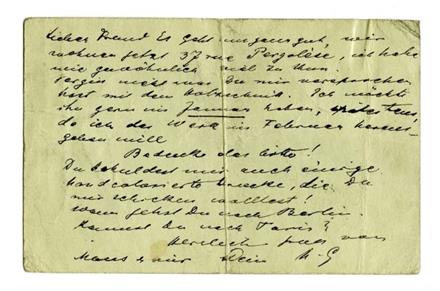 Lieber Freund Es geht uns ganz gut, wir
wohnen jetzt 37 rue Pergolèse, ich habe
wie gewöhnlich viel zu thun
vergiss nicht was Du mir versprochen
hast mit dem Holzschnitt. Ich möchte
ihn gern im Januar haben, spätestens,
da ich das Werk im Februar heraus-
geben will
Bedenke das bitte!
Du schuldest mir auch einige
handcolorierte Drucke, die Du
mir schicken wolltest!
Wann gehst Du nach Berlin.
Kommst Du nach Paris?
Herzlich von
und mir Dein